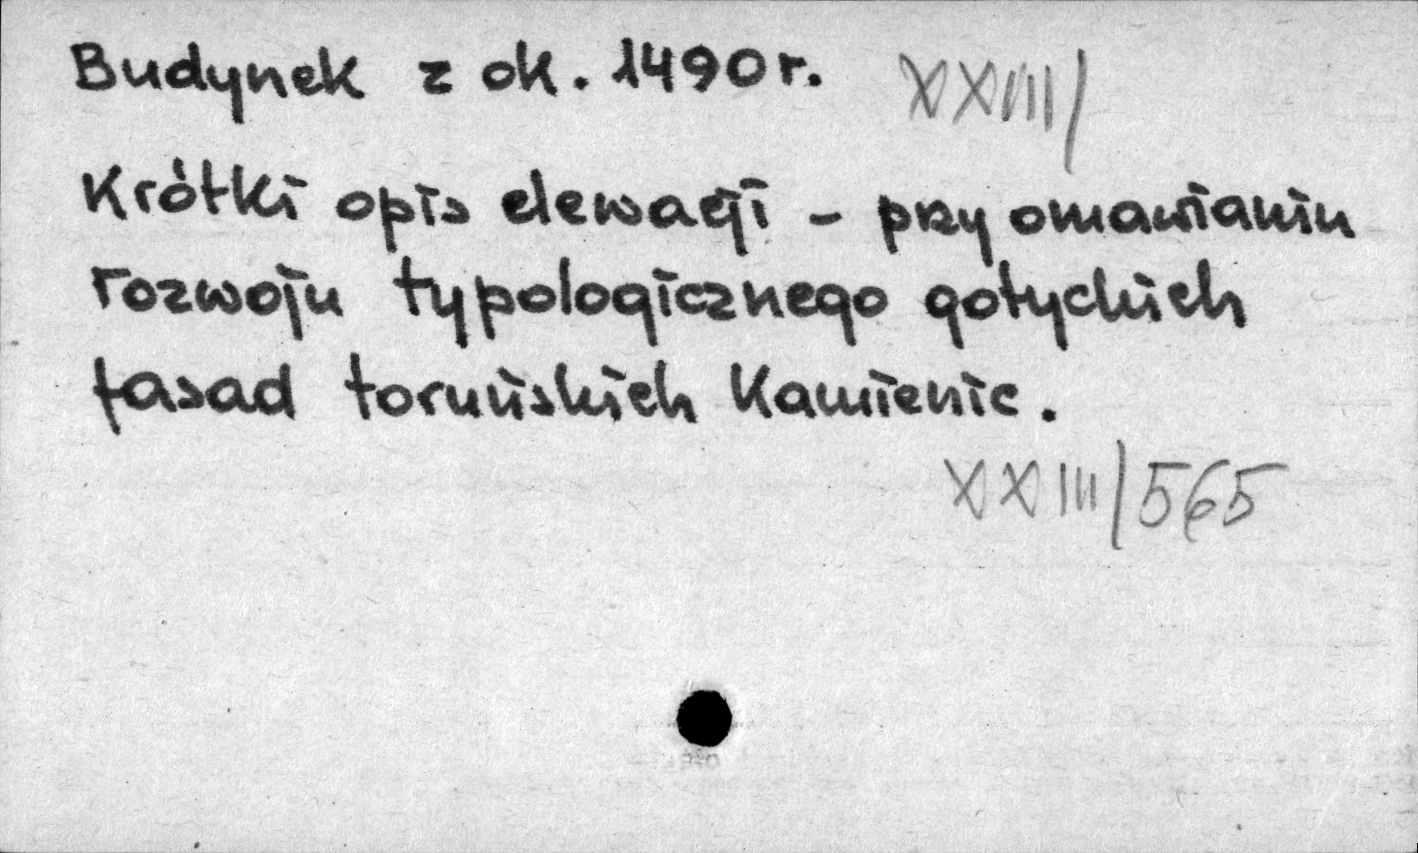 Budynek z ok. 1490 r. XXIII/
Krótki opis elewacji – przy omawianiu
rozwoju typologicznego gotyckich
fasad toruńskich kamienic.
XXIII/565